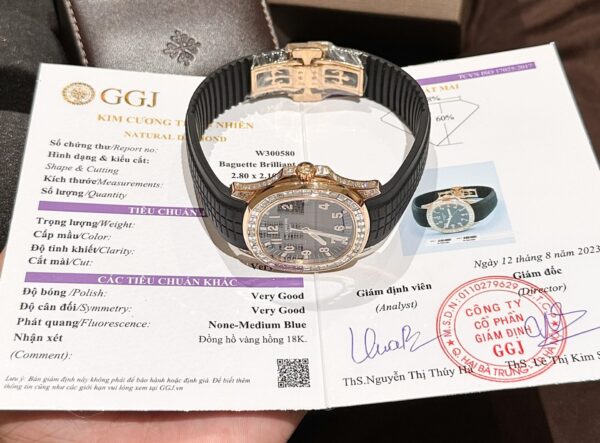 TCVN ISO 17025:2017
GGJ
KIM CƯƠNG NHIÊN
NATURAL
Số chứng thư/Report no: W300580
Hình dạng & kiểu cắt: Baguette Brilliant
Shape & Cutting
Kích thước/Measurements 2.80 x
Số lượng/Quantity
TIÊU CHUẨN
Trọng lượng/Weight:
Cấp màu/Color:
Độ tinh khiết/Clarity:
Cắt mài/Cut: Very
CÁC TIÊU CHUẨN KHÁC
Độ bóng/Polish: Very Good
Độ cân đối/Symmetry: Very Good
Phát quang/Fluorescence: None-Medium Blue
Nhận xét Đồng hồ vàng hồng 18K.
(Comment):
Lưu ý: Bản giám định này không phải để bảo hành hoặc định giá. Để biết thêm
thông tin về các giới hạn vui lòng xem tại GGJ.vn
ẮT MÀI
60%
Ngày 12 tháng 8 năm 2023
Giám định viên Giám đốc
(Analyst) (Director)
M.S.D.N: 0110279629
CÔNG TY
CỔ PHẦN
GIÁM ĐỊNH
GGJ
Q. HAI BÀ TRƯNG
ThS.Nguyễn Thị Thúy Hà ThS. Lê Thị Kim